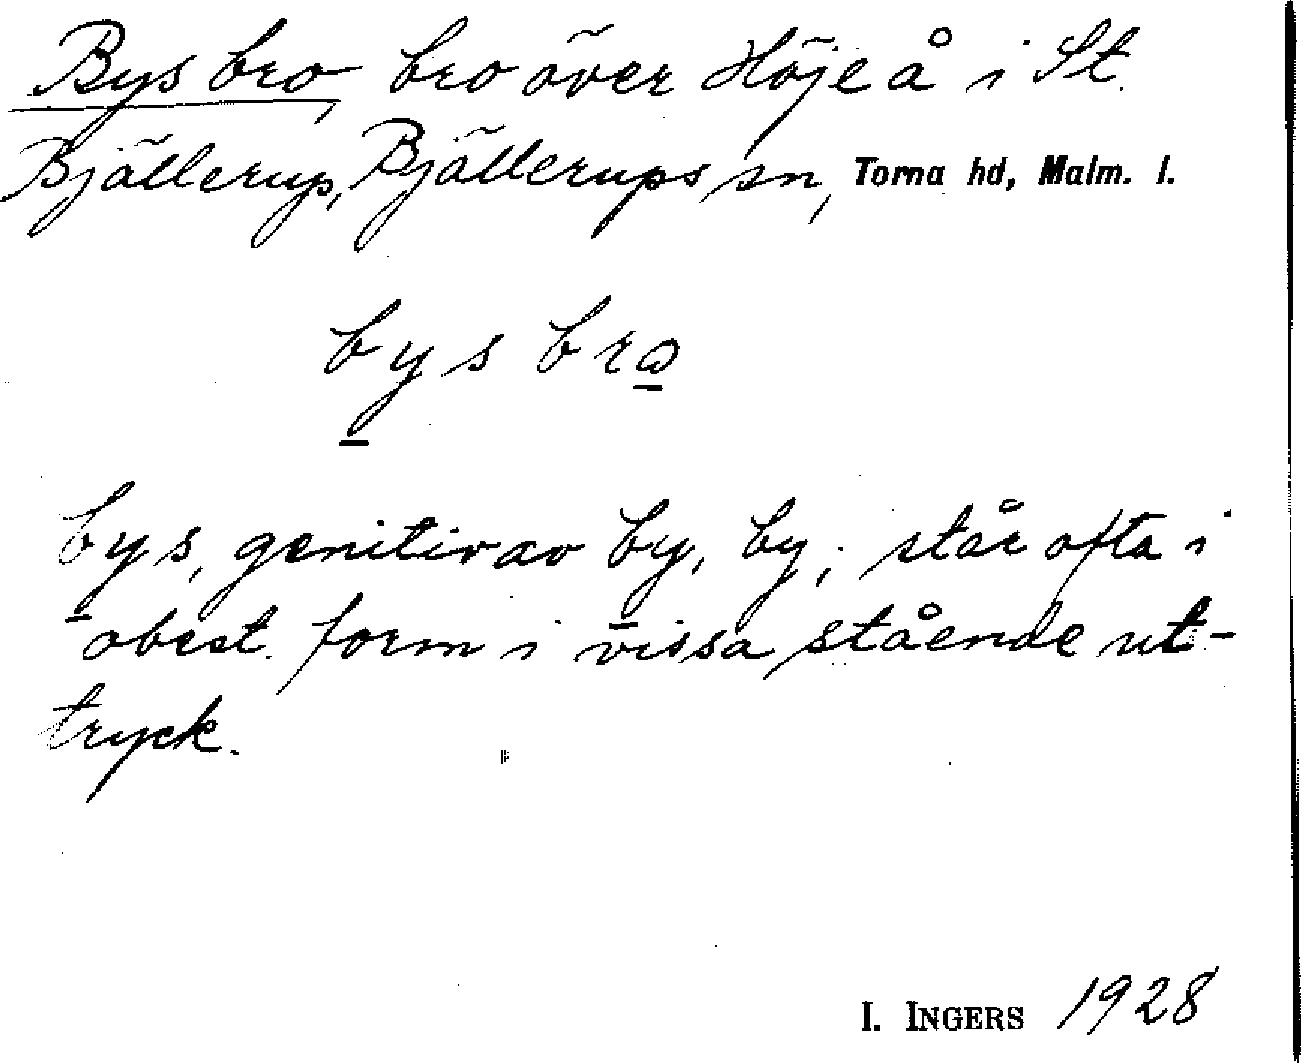 Bys bro, bro över Höje å i St.
Bjällerup, Bjällerups sn, Torna hd, Malm. l.
bys bro
bys, genitiv av by, by; står ofta i
obest. form i vissa stående ut-
tryck.
I. INGERS 1928